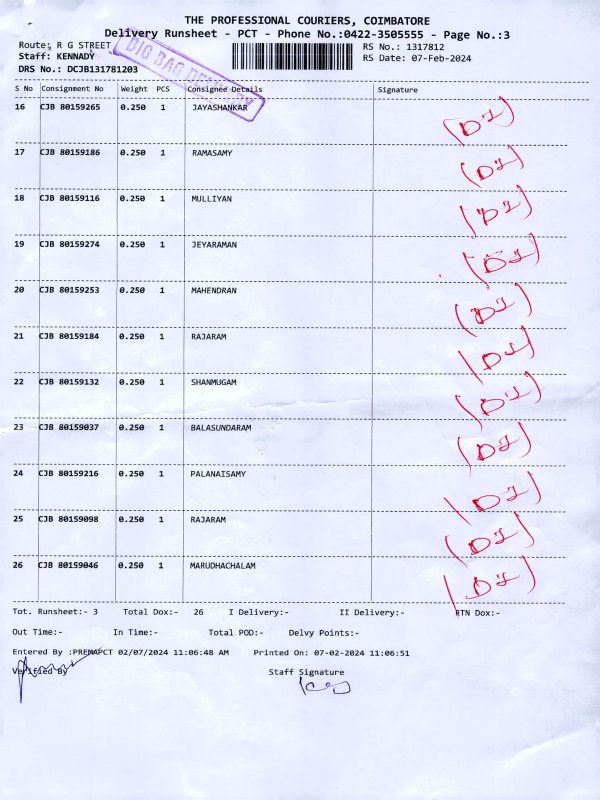 THE PROFESSIONAL COURIERS, COIMBATORE
Delivery Runsheet - PCT - Phone No.:0422-3505555 - Page No.:3
Route: R G STREET RS No.: 1317812
Staff: KENNADY RS Date: 07-Feb-2024
DRS No.: DCJB131781203
BIG BAG DELIVERY
S No Consignment No Weight PCS Consignee Details Signature
16 CJB 80159265 0.250 1 JAYASHANKAR (D2)
17 CJB 80159186 0.250 1 RAMASAMY (D2)
18 CJB 80159116 0.250 1 MULLIYAN (D2)
19 CJB 80159274 0.250 1 JEYARAMAN (D2)
20 CJB 80159253 0.250 1 MAHENDRAN (D2)
21 CJB 80159184 0.250 1 RAJARAM (D2)
22 CJB 80159132 0.250 1 SHANMUGAM (D2)
23 CJB 80159037 0.250 1 BALASUNDARAM (D2)
24 CJB 80159216 0.250 1 PALANAISAMY (D2)
25 CJB 80159098 0.250 1 RAJARAM (D2)
26 CJB 80159046 0.250 1 MARUDHACHALAM (D2)
Tot. Runsheet:- 3 Total Dox:- 26 I Delivery:- II Delivery:- RTN Dox:-
Out Time:- In Time:- Total POD:- Delvy Points:-
Entered By :PREMAPCT 02/07/2024 11:06:48 AM Printed On: 07-02-2024 11:06:51
Verified By Staff Signature